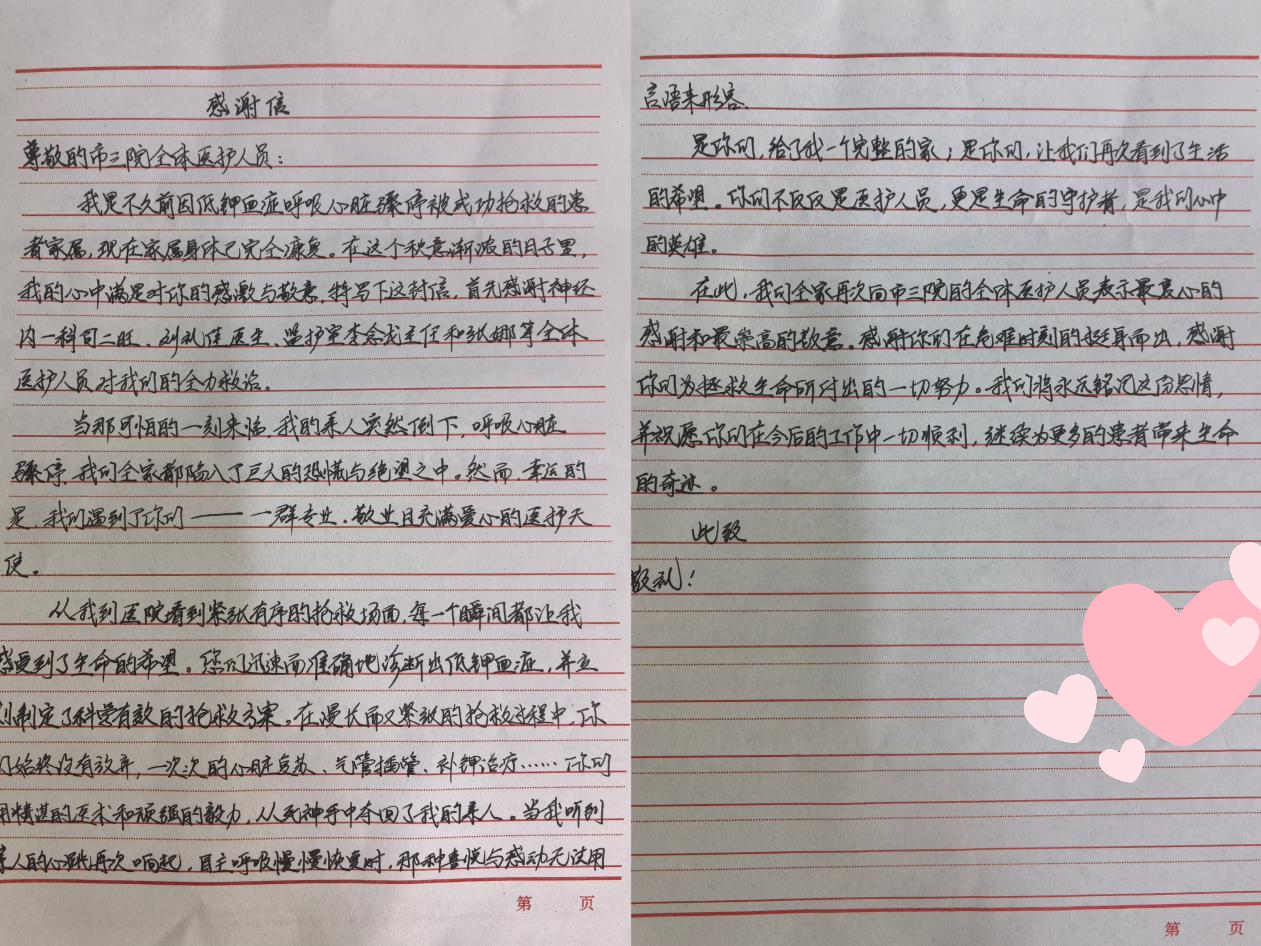 感谢信
尊敬的市三院全体医护人员:
我是不久前因低钾血症呼吸心脏骤停被成功抢救的患
者家属,现在家属身体已完全康复。在这个秋意渐浓的日子里,
我的心中满是对你的感激与敬意,特写下这封信,首先感谢神经
内一科司二旺、刘礼佳医生、监护室李念龙主任和张娜等全体
医护人员对我们的全力救治。
当那可怕的一刻来临,我的亲人突然倒下,呼吸心脏
骤停,我们全家都陷入了巨大的恐慌与绝望之中。然而,幸运的
是,我们遇到了你们——一群专业、敬业且充满爱心的医护天
使。
从我到医院看到紧张有序的抢救场面,每一个瞬间都让我
感受到了生命的希望。您们迅速而准确地诊断出低钾血症,并立
刻制定了科学有效的抢救方案。在漫长而又紧张的抢救过程中,你
们始终没有放弃,一次次的心脏复苏、气管插管、补钾治疗……你们
用精湛的医术和顽强的毅力,从死神手中夺回了我的亲人。当我听到
亲人的心跳再次响起,自主呼吸慢慢恢复时,那种喜悦与感动无法用
第 页
言语来形容。
是你们,给了我一个完整的家;是你们,让我们再次看到了生活
的希望。你们不仅仅是医护人员,更是生命的守护者,是我们心中
的英雄。
在此,我们全家再次向市三院的全体医护人员表示最衷心的
感谢和最崇高的敬意。感谢你们在危难时刻的挺身而出,感谢
你们为拯救生命所付出的一切努力。我们将永远铭记这份恩情,
并祝愿你们在今后的工作中一切顺利,继续为更多的患者带来生命
的奇迹。
此致
敬礼!
第 页